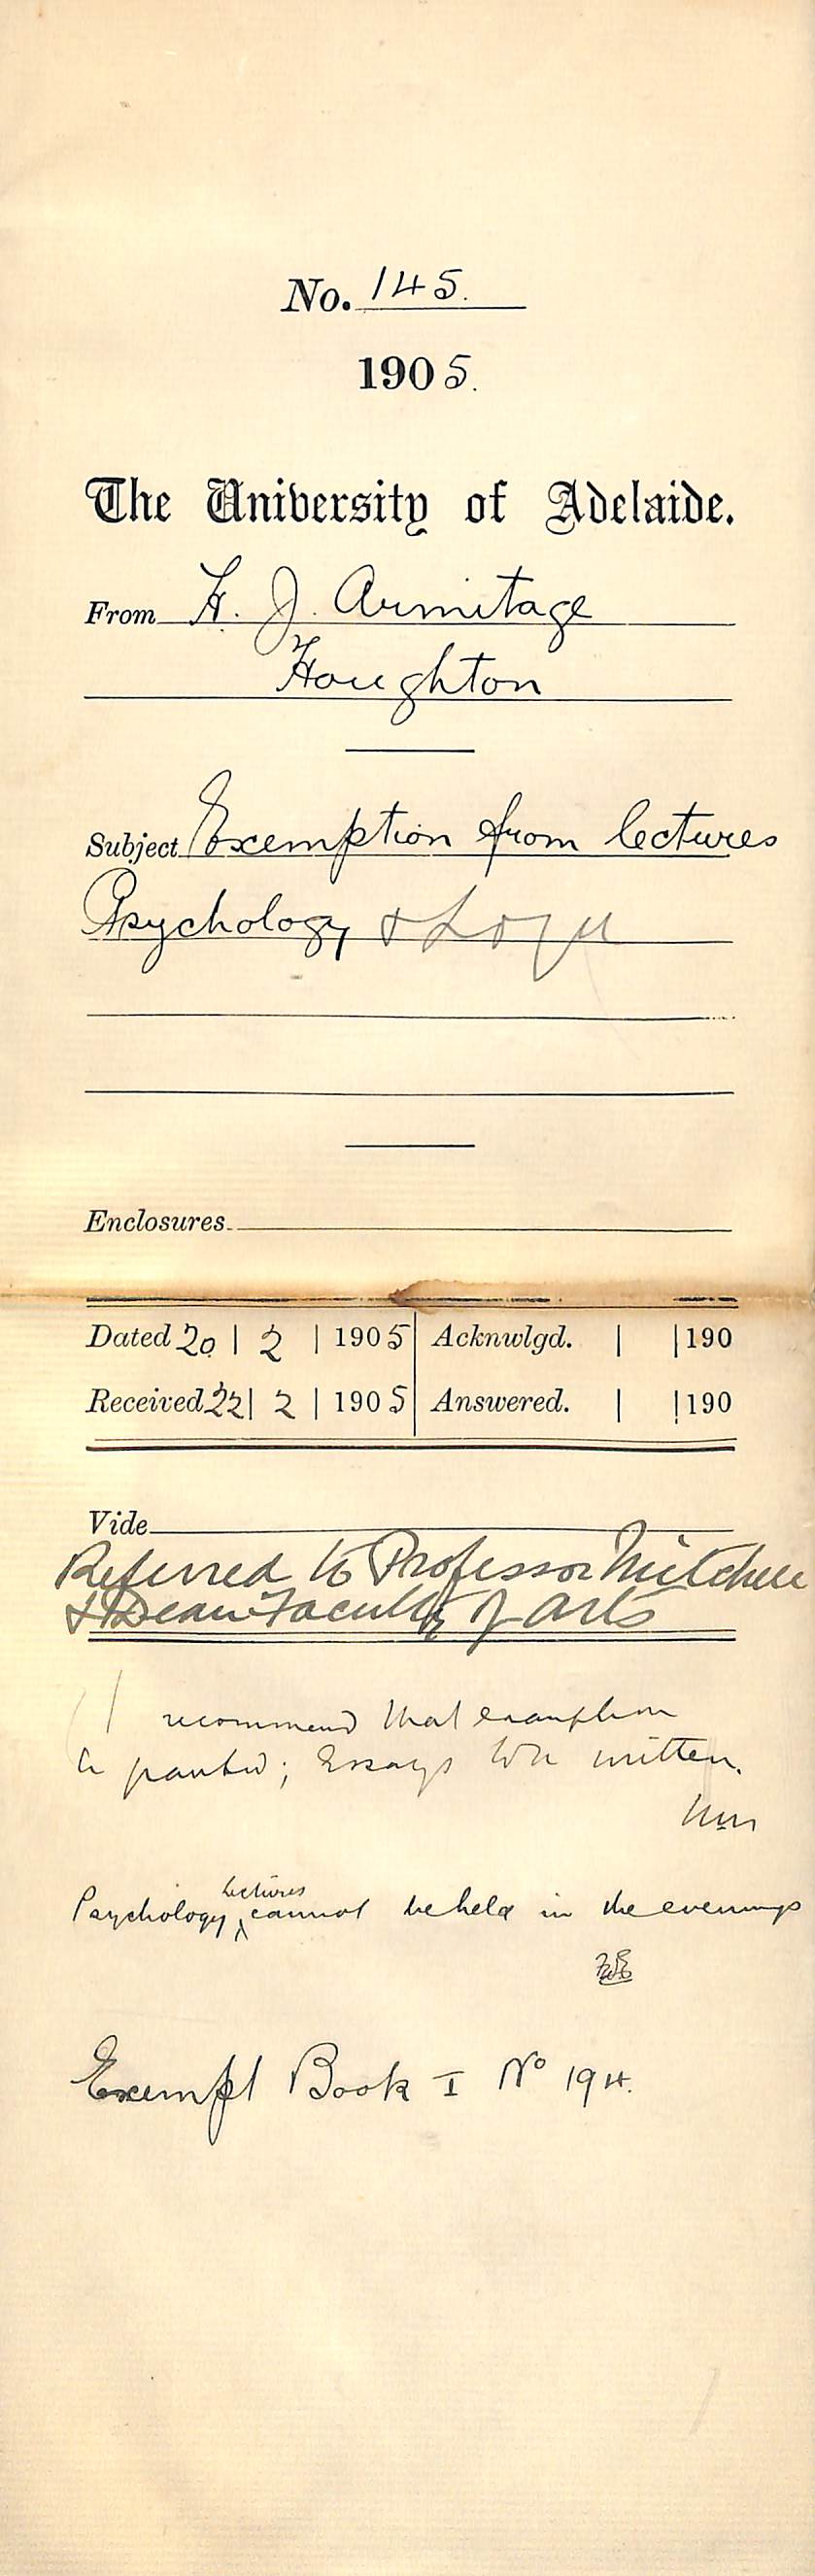 No. 145.
1905.
The University of Adelaide.
From H. J. Armitage
Houghton
Subject Exemption from lectures
Psychology & Logic
Enclosures
Dated 20 | 2 | 1905 Acknwlgd. | | 190
Received 22 | 2 | 1905 Answered. | | 190
Vide
Referred to Professor Mitchell
& Dean Faculty of Arts
I recommend that exemption
be granted; Essays to be written.
WM
Psychology lectures cannot be held in the evenings
Exempt Book I No 194.